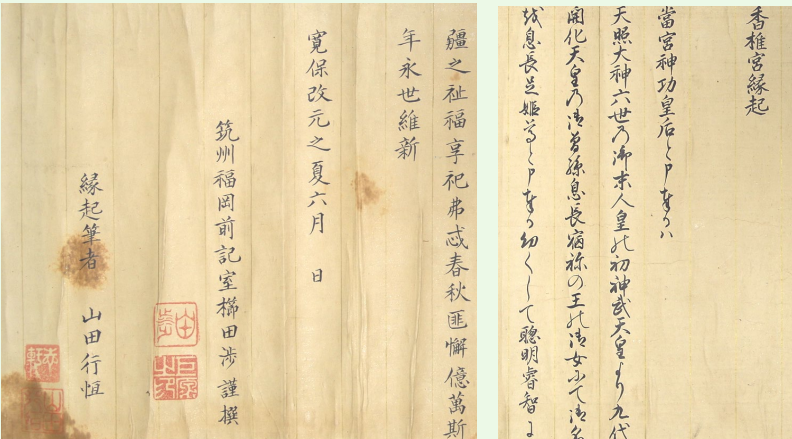 香椎宮縁起
當宮神功皇后と申奉るハ
天照大神六世乃御末人皇の初神武天皇より九代
開化天皇乃御曾孫息長宿祢の王の御女にて御名
越息長足姫尊と申奉る幼くして聰明睿智に
疆之祉福享祀弗忒春秋匪懈億萬斯
年永世維新
寛保改元之夏六月 日
筑州福岡前記室櫛田渉謹撰
縁起筆者 山田行恒